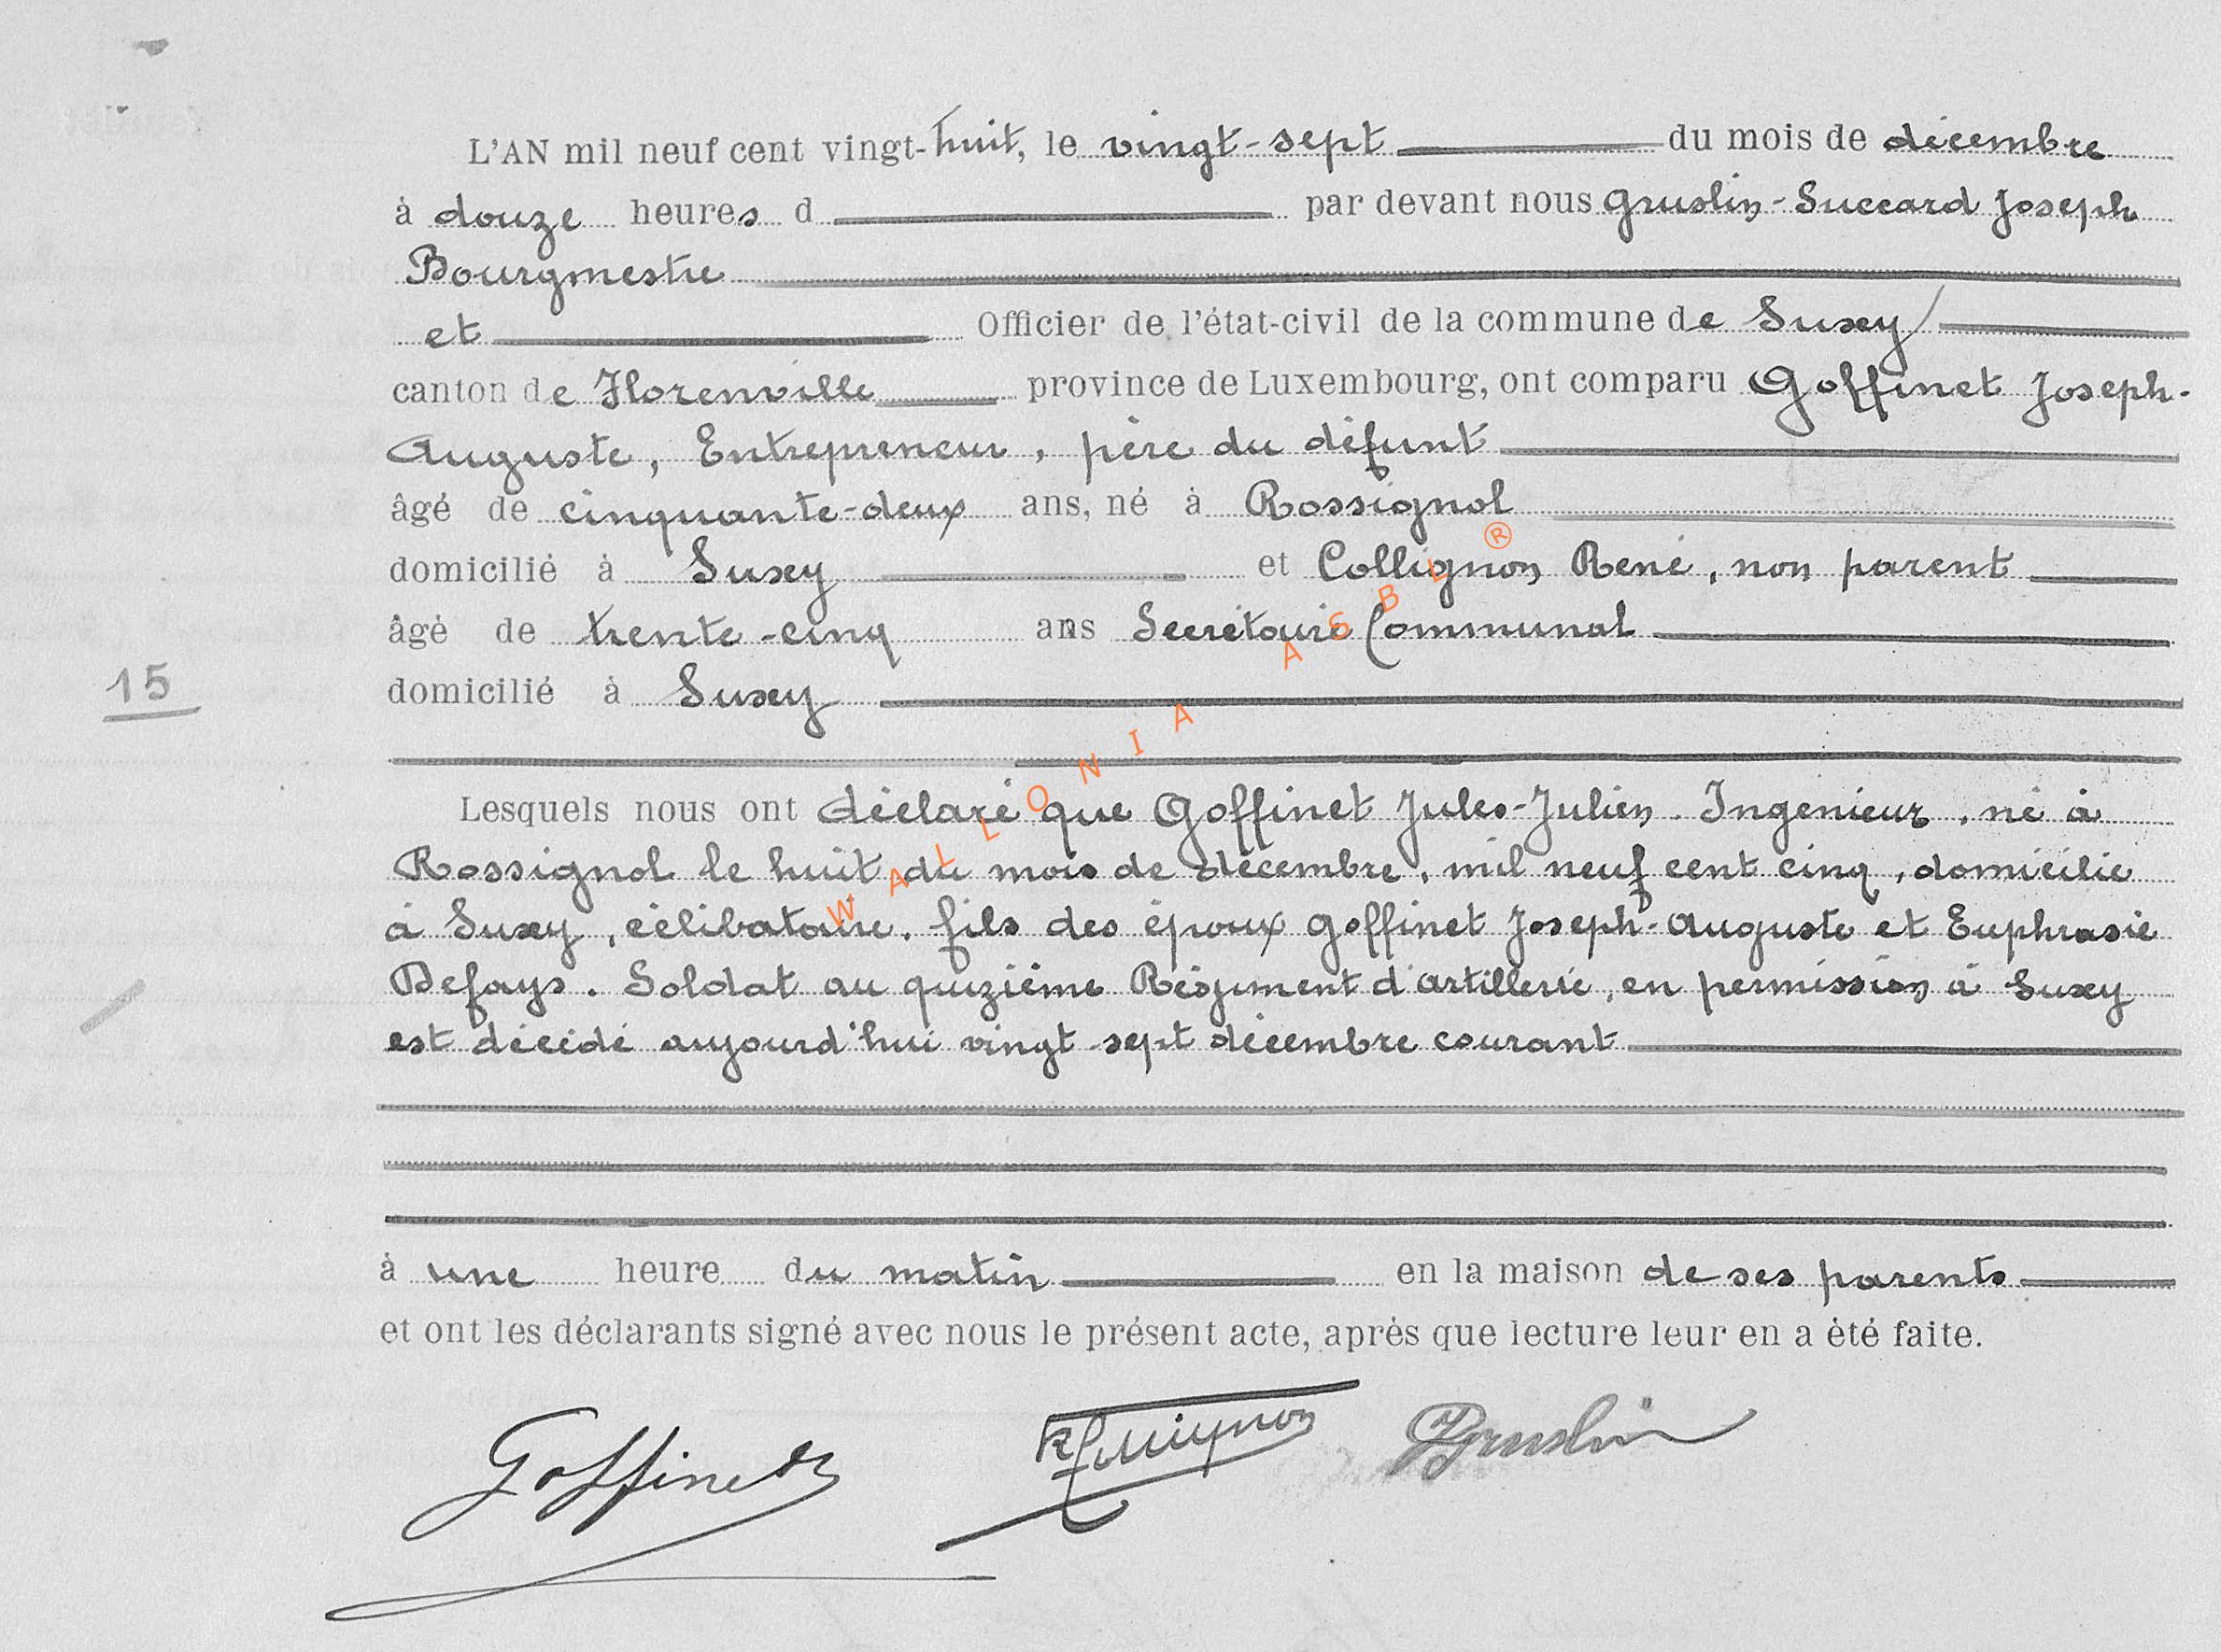 L'AN mil neuf cent vingt-huit, le vingt-sept du mois de décembre
à douze heures d par devant nous Gruslin-Succard Joseph
Bourgmestre
et Officier de l'état-civil de la commune de Suxy
canton de Florenville province de Luxembourg, ont comparu Goffinet Joseph-
Auguste, Entrepreneur, père du défunt
âgé de cinquante-deux ans, né à Rossignol
domicilié à Suxy et Collignon René, non parent
âgé de trente-cinq ans Secrétaire Communal
15
domicilié à Suxy
Lesquels nous ont déclaré que Goffinet Jules-Julien. Ingénieur, né à
Rossignol le huit du mois de décembre, mil neuf cent cinq, domicilié
à Suxy, célibataire. fils des époux Goffinet Joseph-Auguste et Euphrasie
Defays. Soldat au quizième Régiment d'artillerie, en permission à Suxy
est décédé aujourd'hui vingt-sept décembre courant
à une heure du matin en la maison de ses parents
et ont les déclarants signé avec nous le présent acte, après que lecture leur en a été faite.
Goffinet RCollignon JGruslin
WALLONIA ASBL ®